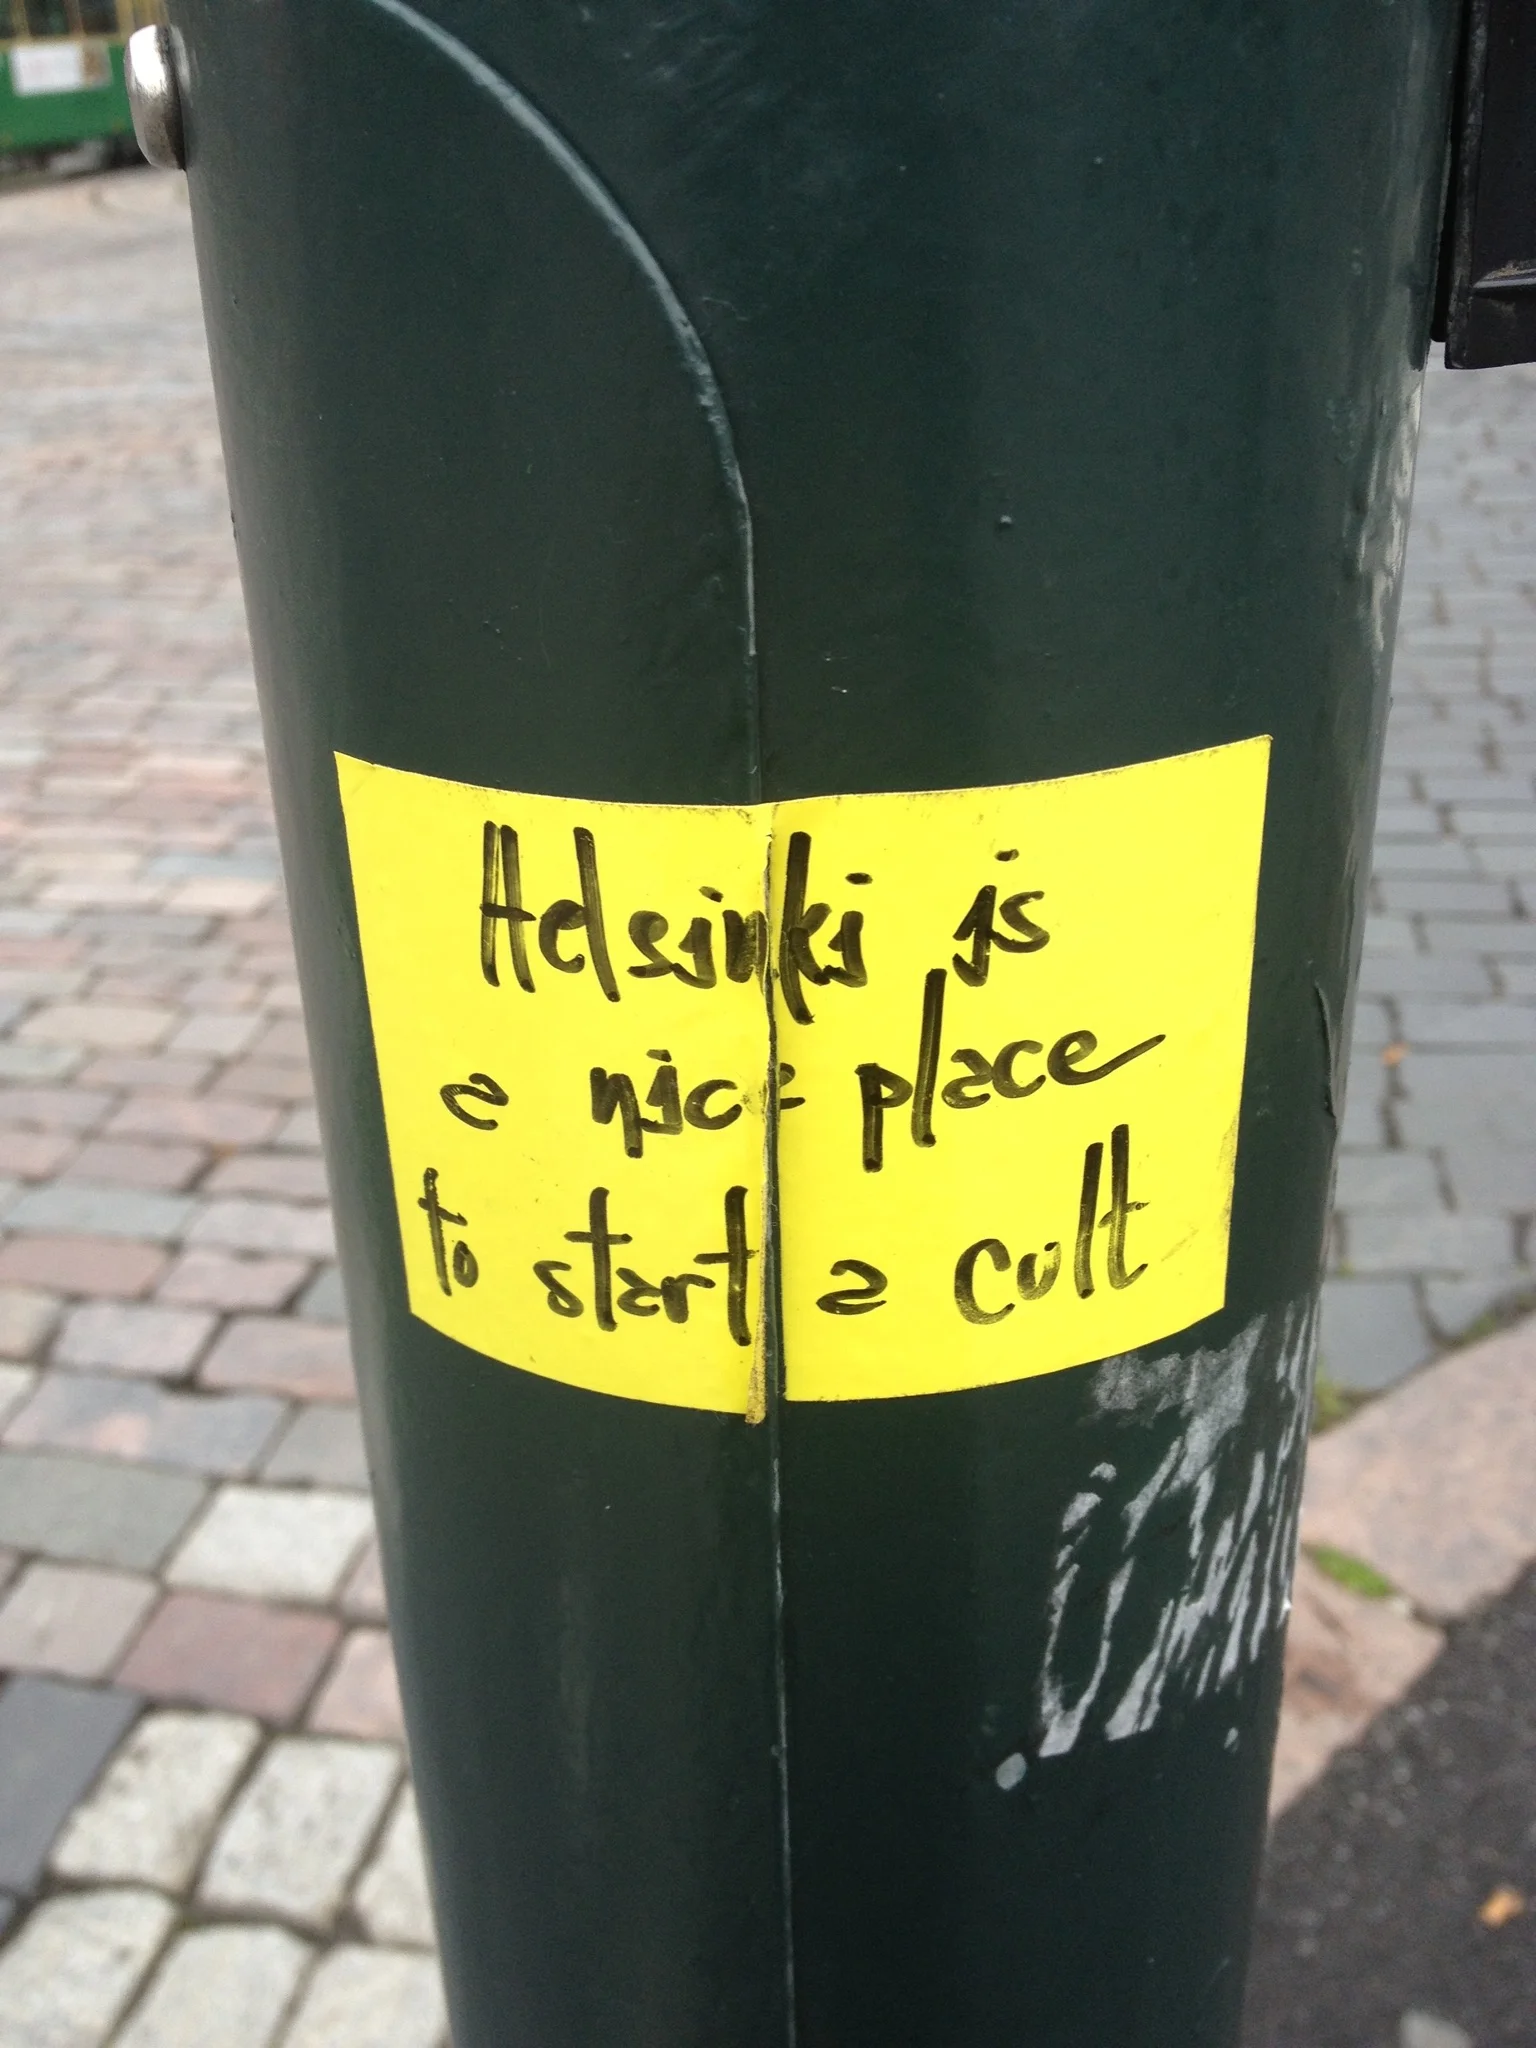 Helsinki is
a nice place
to start a cult